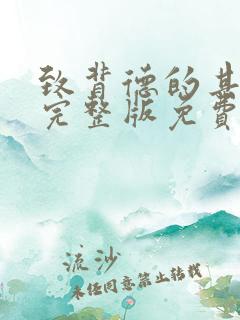 致背德的其
完整版免费
流沙
未经同意禁止转载